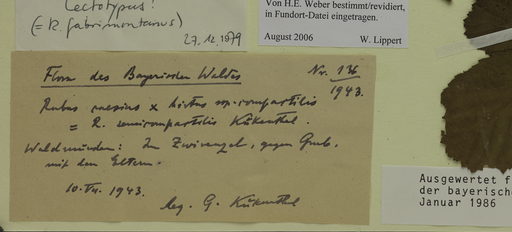 Lectotypus!
(= R. fabrimontanus)
27.12.1979
Von H.E. Weber bestimmt/revidiert,
in Fundort-Datei eingetragen.
August 2006 W. Lippert
Flora des Bayerischen Waldes
Nr. 136
1943.
Rubus caesius x hirtus ssp.
= R. Kükenthal.
Waldmünden: Im Zwirenzel, gegen
mit den Eltern.
10.VII.1943.
leg. G. Kükenthal
Ausgewertet f
der bayerisch
Januar 1986